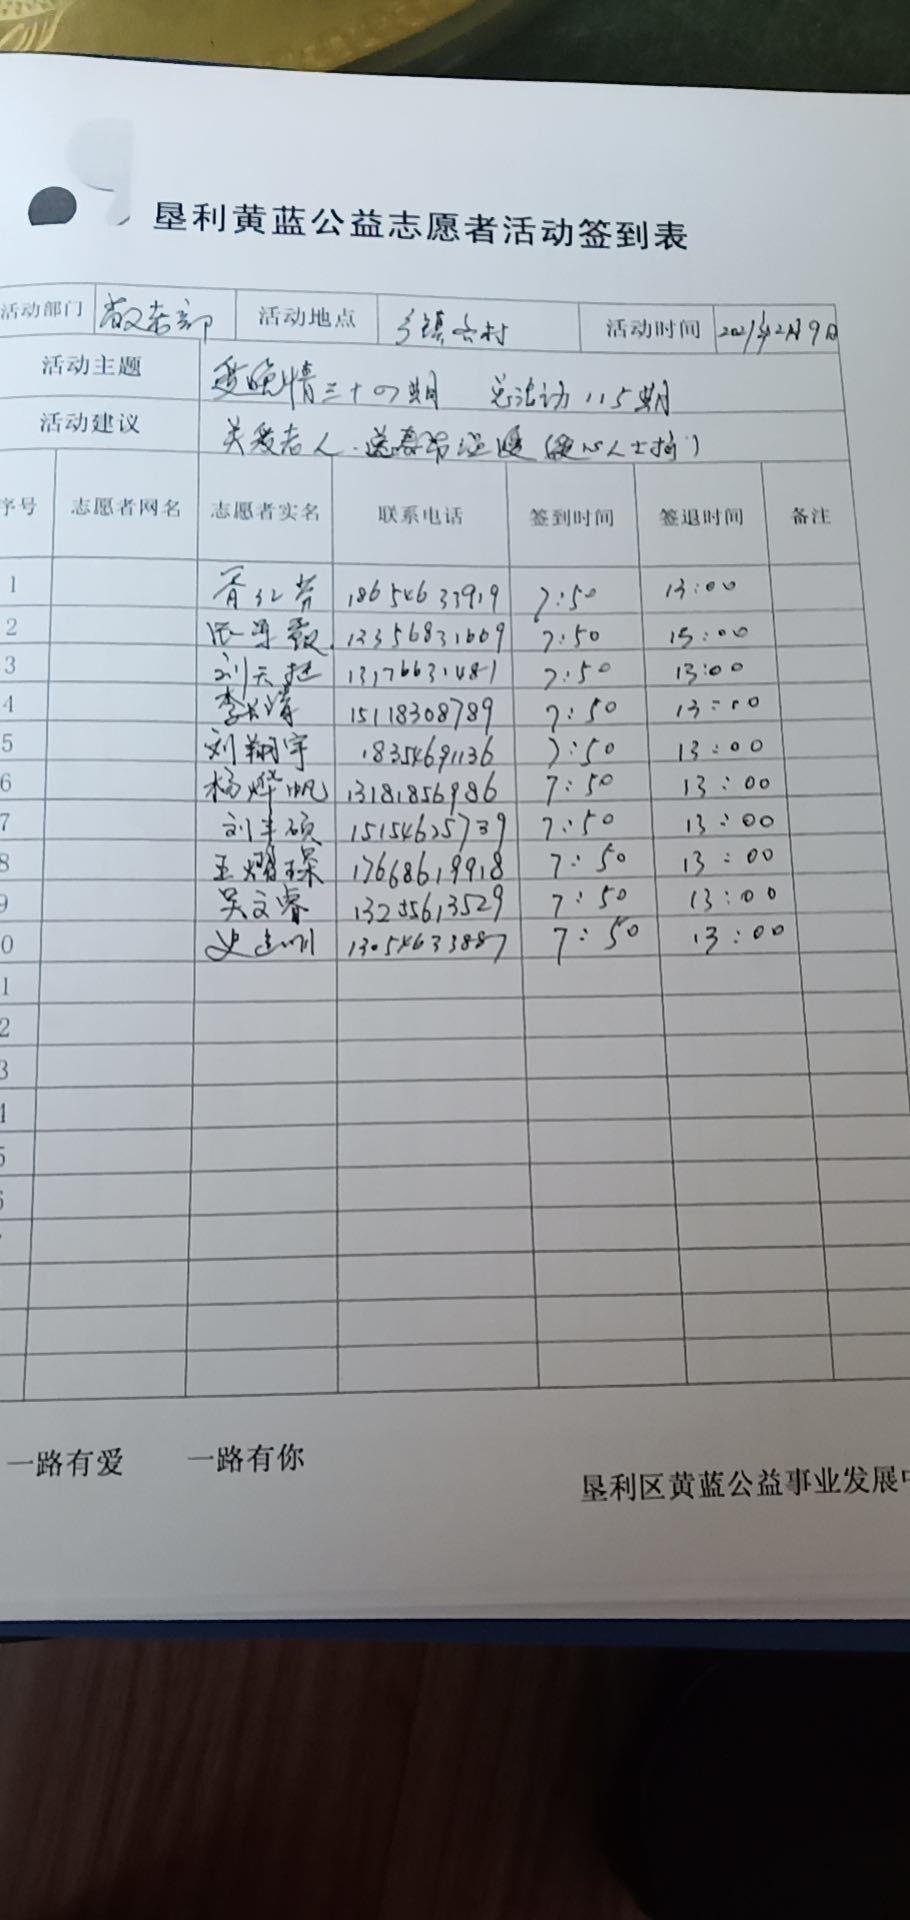 垦利黄蓝公益志愿者活动签到表
活动部门 敬老部 活动地点 乡镇各村 活动时间 2021年2月9日
活动主题 爱晚情三十四期 总活动115期
活动建议 关爱老人.送春节温暖(爱心人士捐)
序号 志愿者网名 志愿者实名 联系电话 签到时间 签退时间 备注
1 18654633919 7:50 13:00
2 13356831669 7:50 15:00
3 刘天赳 13176631481 7:50 13:00
4 15118308789 7:50 13:00
5 刘翔宇 18354691136 7:50 13:00
6 杨烨帆 13181856986 7:50 13:00
7 刘丰硕 15154625739 7:50 13:00
8 王耀琛 17668619918 7:50 13:00
9 吴文睿 13255613529 7:50 13:00
0 13054633887 7:50 13:00
1
2
3
4
5
6
一路有爱 一路有你
垦利区黄蓝公益事业发展中